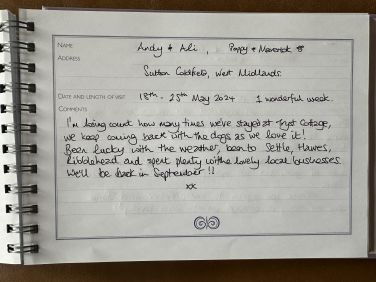 NAME Andy & Ali, Poppy & Maverick
ADDRESS
Sutton Coldfield, West Midlands.
DATE AND LENGTH OF VISIT 18th - 25th May 2024 1 wonderful week.
COMMENTS
I'm losing count how many times we've stayed at Cottage,
we keep coming back with the dogs as we love it!
Been lucky with the weather, been to Settle, Hawes,
Ribblehead and spent plenty withe lovely local businesses
We'll be back in September!!
xx